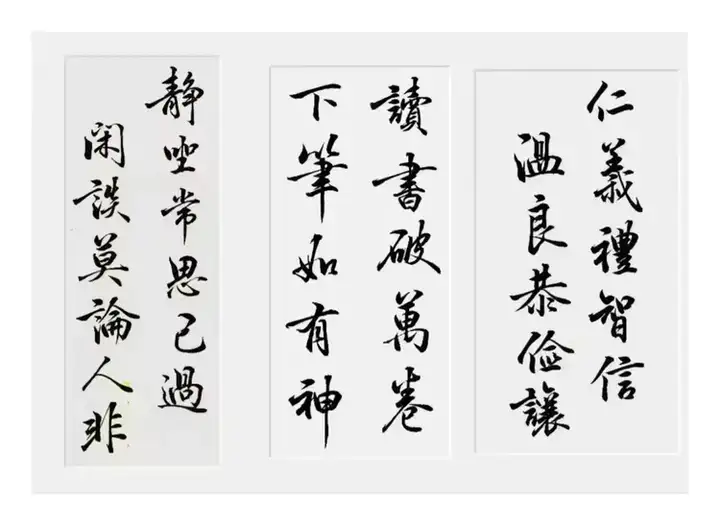 仁義禮智信
溫良恭俭讓
讀書破萬卷
下筆如有神
静坐常思己過
閑談莫論人非